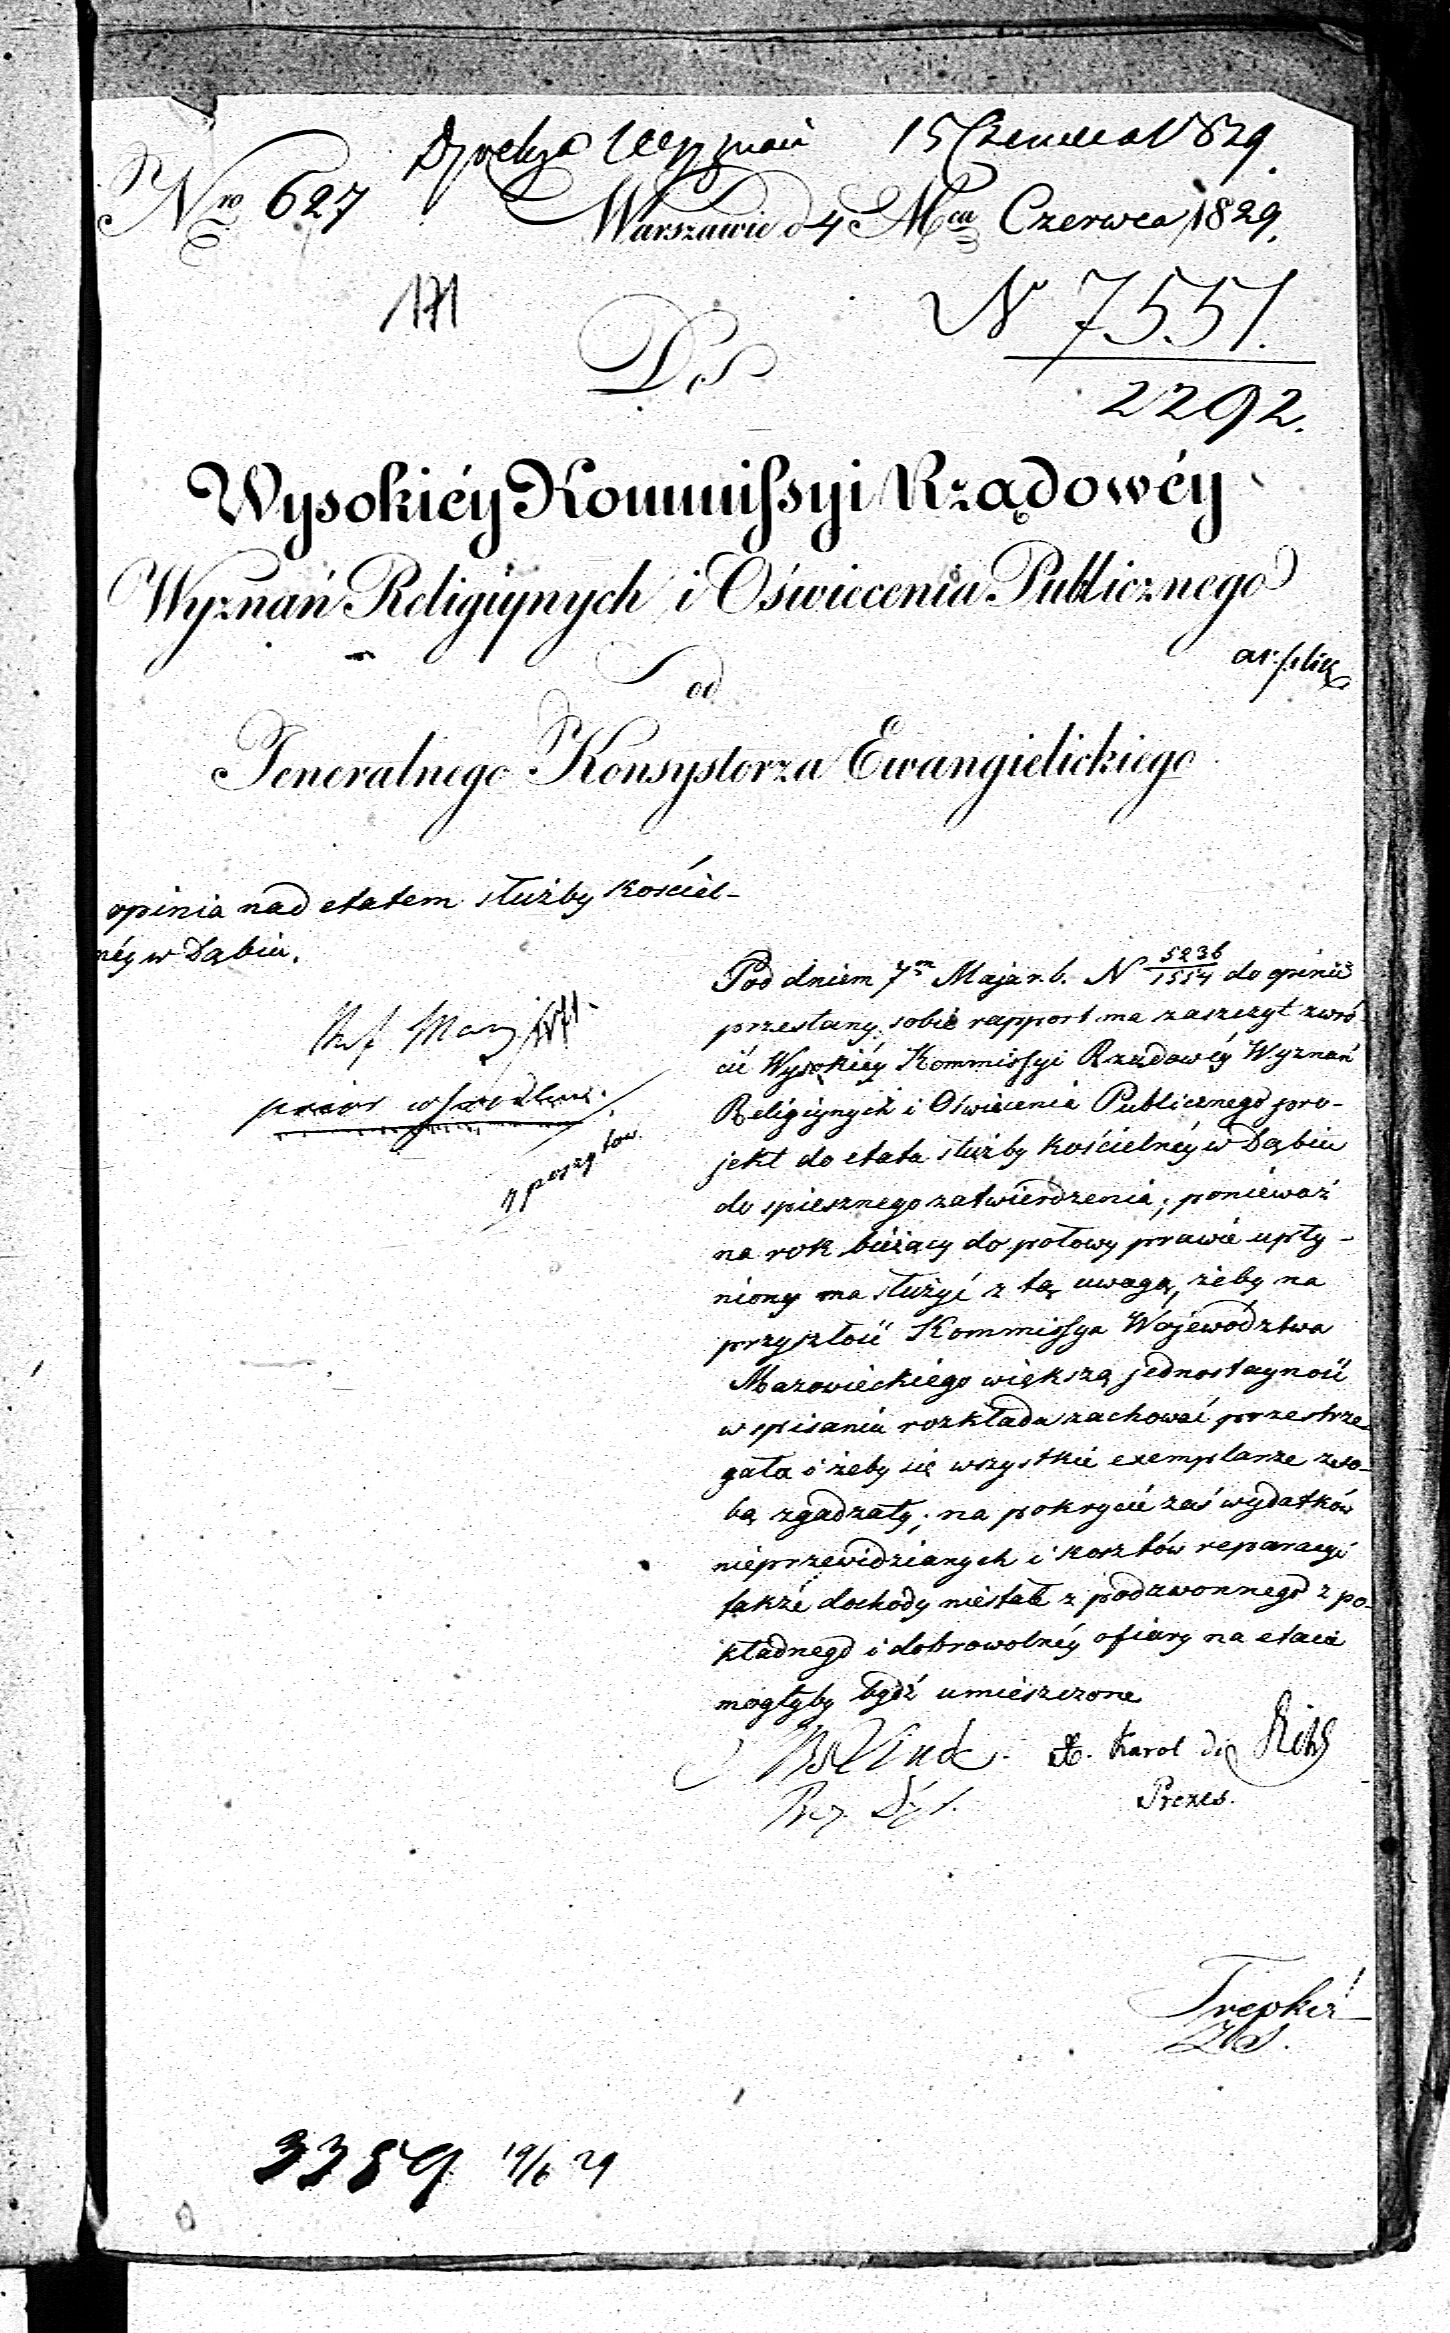 15 Czerwca 1829.
Nro 627
Warszawie d 4 Mca Czerwca 1829.
171
N 7551.
2292.
Do
Wysokiéy Kommissyi Rządowéy
Wyznań Religiynych i Oświecenia Publicznego
od
Jeneralnego Konsystorza Ewangielickiego
opinia nad etatem służby kościel-
néy w Dąbiu.
Pod dniem 7m Maja r. b. N 5236/1554 do opinii
przesłany sobie rapport ma zaszczyt zwró
cić Wysokiéy Kommissyi Rządowéy Wyznań
Religiynych i Oświecenia Publicznego pro-
jekt do etatu służby kościelnéy w Dąbiu
do spiesznego zatwierdzenia; ponieważ
na rok bieżący do połowy prawie upły-
niony ma służyć z tą uwagą, żeby na
przyszłość Kommissya Województwa
Mazowieckiego większą jednostayność
w spisaniu rozkładu zachować przestrze-
gała i żeby się wszystkie exemplarze z so-
bą zgadzały; na pokrycie zaś wydatków
nieprzewidzianych i kosztów reparacyi
także dochody niestałe z podzwonnego z po-
kładnego i dobrowolnéy ofiary na etacie
mogłyby bydź umieszczone
X. Karol
Prezes.
3389 19/6 29